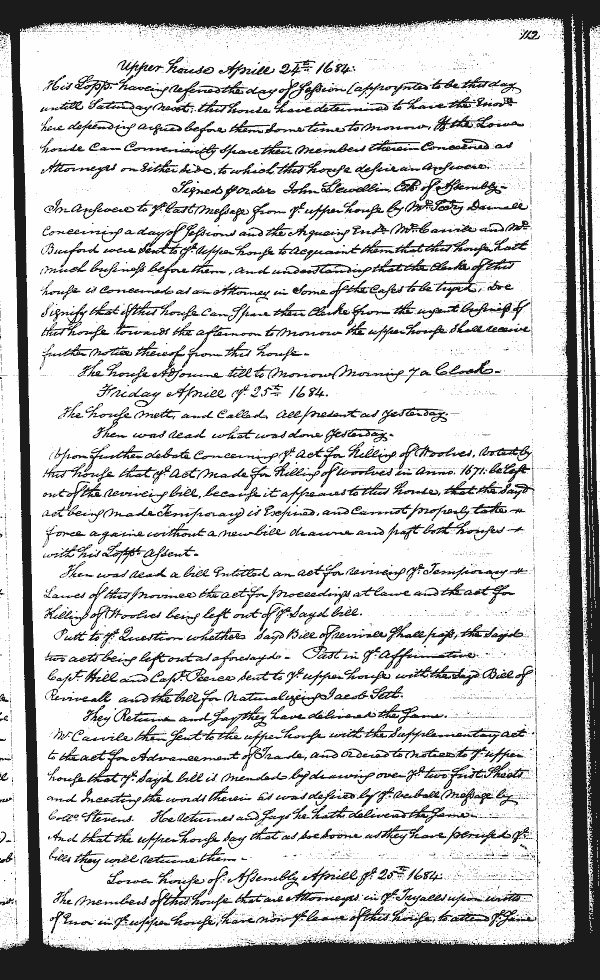 112
Upper house Aprill 24th 1684.
His Lopp. having referred the day of Session (appoynted to be this day
untill Saturday next: this house have determined to have the Erors
here depending argued before them sometime to morrow, If the Lower
house Can Conveniently spare their Members therein Concerned as
Attorneyes on Either side, to which this house desire an Answere.
Signed p order John Llewellin Clk of Assembly
In Answere to ye Last Message from ye upper house by Mr Darnall
Concerning a day of Sessions and the Argueing Mr Carvile and Mr
Burford were sent to ye upper house to acquaint them that this house hath
much business before them, And understanding that the Clerke of this
house is concerned as an Attorney in Some of the Cases to be tryed, Doe
Signify that if this house Can Spare their Clerke from the urgent business of
this house towards the afternoon to Morrow the upper house Shall receive
further notice thereof from this house.
The house Adjourne till to Morrow Morning 7 a Clock.
Friday Aprill ye 25th 1684.
The house mett, and Called All present as yesterday
Then was read what was done yesterday.
Upon further debate Concerning ye Act for Killing of Woolves, Voted by
this house that ye Act made for Killing of Woolves in Anno. 1671. be Left
out of the reviveing bill, because it appeares to this house, that the Sayd
act being made Temporary is Expired, and Cannot properly take
force againe without a new bill drawne and past both houses
with his Lopps Assent.
Then was read a bill Entitled an act for reviveing ye Temporary
Lawes of this Province the act for proceedings at Lawe and the act for
Killing of Woolves being left out of ye Sayd bill.
Putt to ye Question whether Sayd Bill of revivall Shall pass, the Sayd
two acts being left out as aforesayd. Past in ye Affirmative
Capt. Hill and Capt. Peirce sent to ye upper house with the Sayd Bill of
Reviveall and the bill for Naturalizeing Jacob
They Returne and Say they have delivered the Same.
Mr Carvile then Sent to the upper house with the Supplementary act
to the act for Advancement of Trade, and ordered to notice to ye upper
house that ye Sayd bill is mended by drawing over ye two first Sheets
and Incerting the words therein as was desired by ye verball Message by
Collo Stevens. He returnes and Says he hath delivered the Same
And that the upper house Say that as soe soone as they have perused ye
bills they will returne them.
Lower house of Assembly Aprill ye 25th 1684
The members of this house that are Attorneyes in ye Tryalls upon writts
of Error in ye upper house, have now ye leave of this house, to attend ye Same